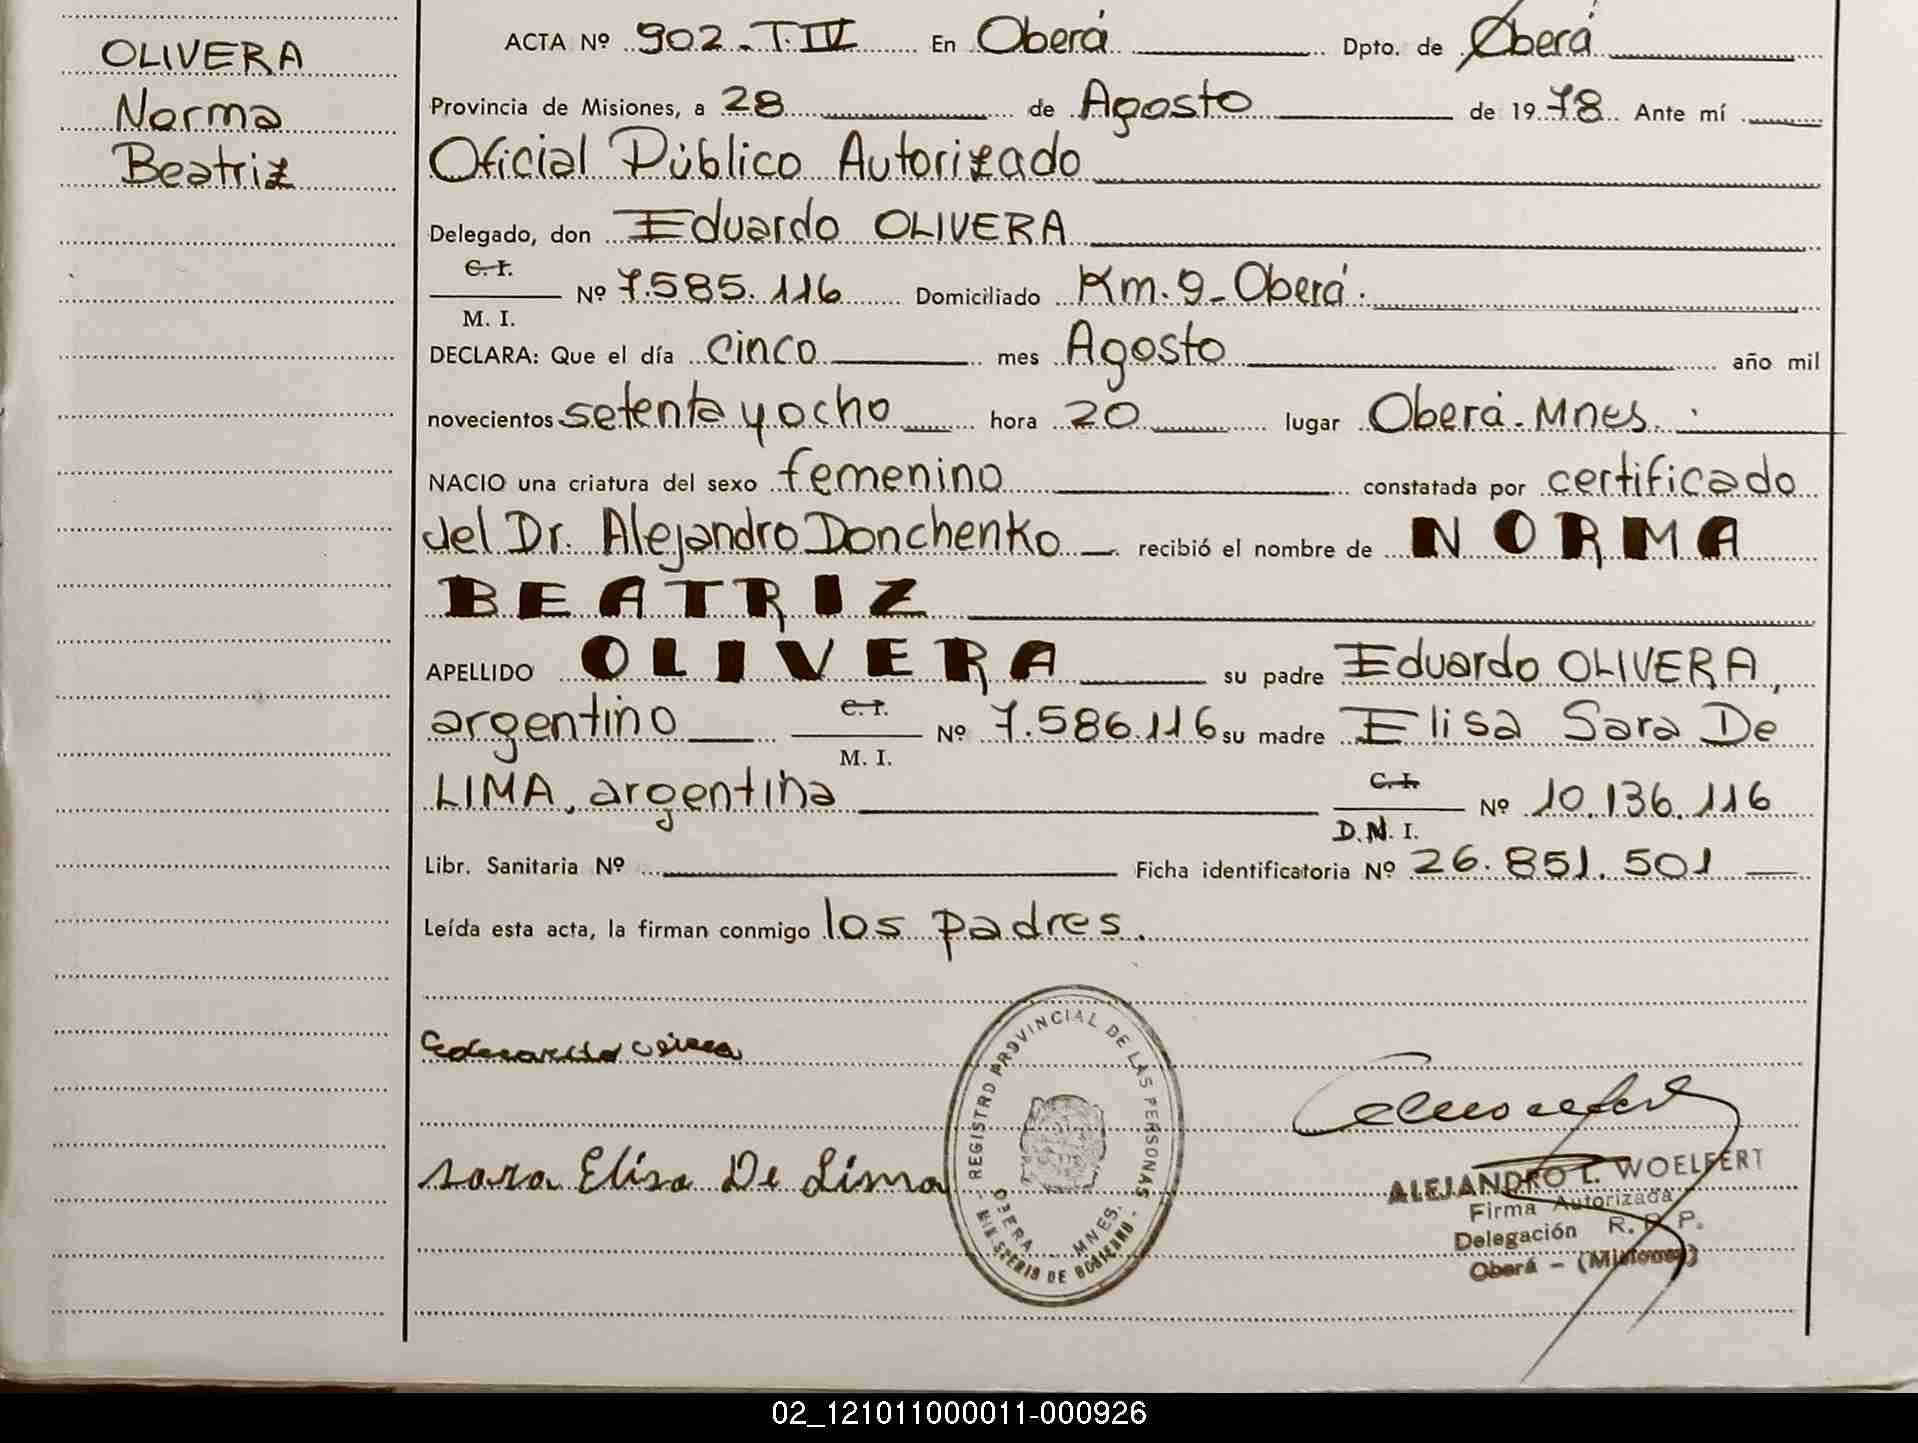 OLIVERA
Norma
Beatriz
ACTA Nº 902-T.IV En Oberá Dpto. de Oberá
Provincia de Misiones, a 28 de Agosto de 1978 Ante mí
Oficial Público Autorizado
Delegado, don Eduardo OLIVERA
C. I.
M. I. Nº 7.585.116 Domiciliado Km. 9 - Oberá.
DECLARA: Que el día cinco mes Agosto año mil
novecientos setenta y ocho hora 20 lugar Oberá - Mnes.
NACIO una criatura del sexo femenino constatada por certificado
del Dr. Alejandro Donchenko recibió el nombre de NORMA
BEATRIZ
APELLIDO OLIVERA su padre Eduardo OLIVERA,
argentino C. I. M. I. Nº 7.586.116 su madre Elisa Sara De
LIMA, argentina C. I. D.N. I. Nº 10.136.116
Libr. Sanitaria Nº Ficha identificatoria Nº 26.851.501
Leída esta acta, la firman conmigo los padres.
Sara Elisa De Lima
REGISTRO PROVINCIAL DE LAS PERSONAS
OBERA - MNES.
MINISTERIO DE GOBIERNO
ALEJANDRO L. WOELFERT
Firma Autorizada
Delegación R. P. P.
Oberá - (Misiones)
02_121011000011-000926